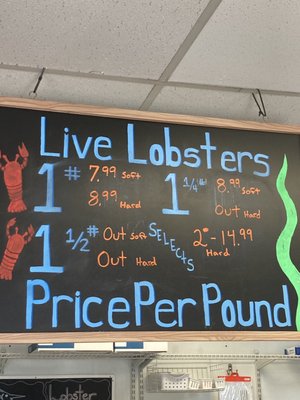 Live Lobsters
1# 7.99 Soft
8.99 Hard
1 1/4# 8.99 Soft
Out Hard
1 1/2# Out Soft
Out Hard
SELECTS
2# - 14.99
Hard
Price Per Pound
Lobster